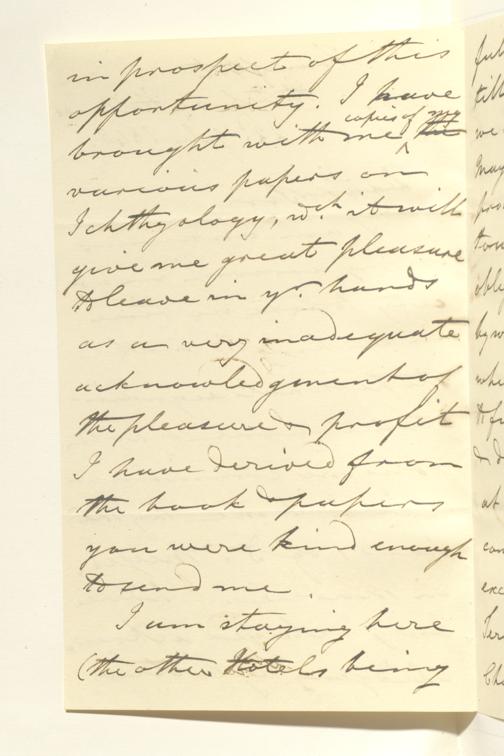 in prospect of this
opportunity. I have
brought with me copies of my the
various papers on
Ichthyology, wch. it will
give me great pleasure
to leave in yr. hands
as a very inadequate
acknowledgment of
the pleasure & profit
I have derived from
the book & papers
you were kind enough
to send me.
I am staying here
(the other Hotels being
ful
till
we
may
pro
by w
whe
to fr
& d
at
con
exc